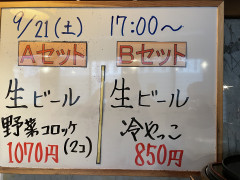 9/21(土) 17:00～
Aセット
生ビール
野菜コロッケ
(2コ)
1070円
Bセット
生ビール
冷やっこ
850円